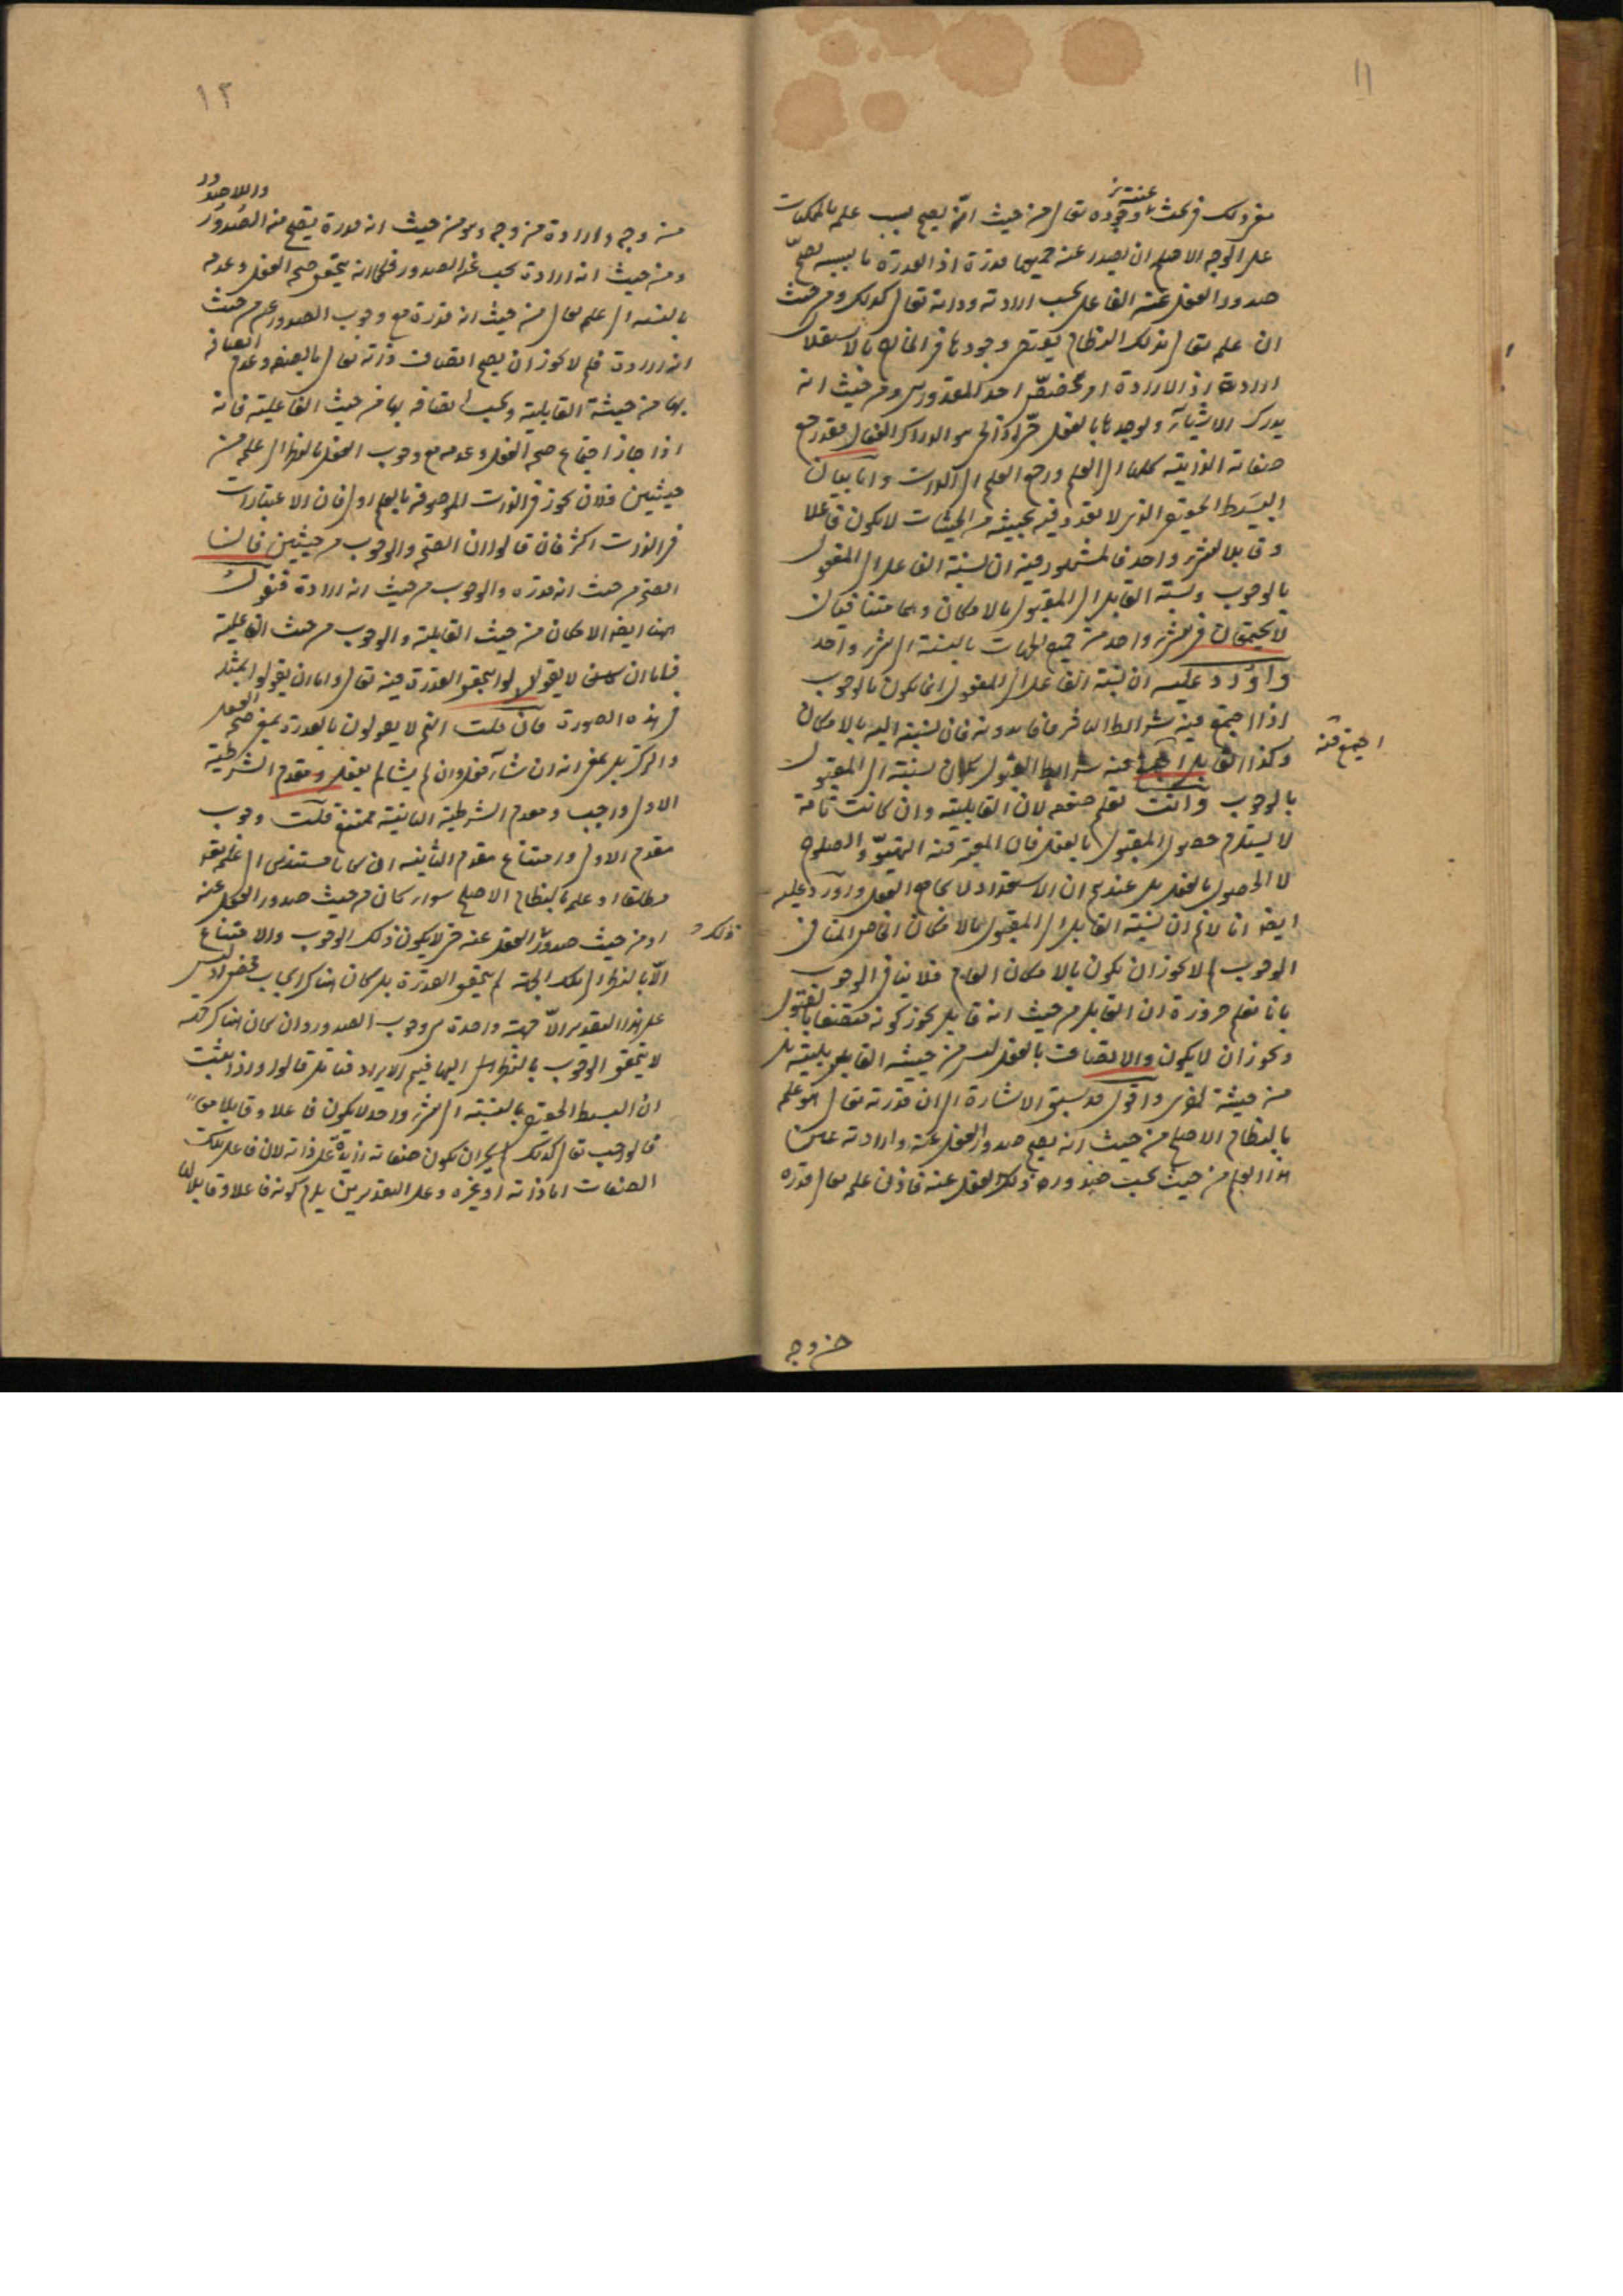 ١١
مفر ذلك فى بحث وجوده تعالى من حيث انه يصح بسبب علمه بالممكنات
عينيته
على الوجه الاصلح ان يصدر عنه جميعها قدرة اذ القدرة ما بسببه يصح
صدور الفعل عن الفاعل بحسب ارادته وذاته تعالى كذلك ومن حيث
ان علمه تعالى بذلك النظام وجودها فى الخارج بالاستقلال
ارادة اذ الارادة امر مخصص احد المقدورين ومن حيث انه
يدرك الاشياء ويوجدها بالفعل اذ الحى هو الدراك الفعال فقد رجع
صفاته الذاتية كلها الى العلم ورجع العلم الى الذات واما بيان
البسيط الحقيقى الذى لا تعدد فيه بحيثية من الحيثيات لا يكون فاعلا
وقابلا لشىء واحد فالمشهور فيه ان نسبة الفاعل الى المفعول
بالوجوب ونسبة القابل الى المقبول بالامكان وهما متنافيان
لا يجتمعان فى شىء واحد من جميع الجهات بالنسبة الى شىء واحد
واورد عليه ان نسبة الفاعل الى المفعول انما يكون بالوجوب
اذا اجتمع فيه شرائط التأثير فاما بدونه فان نسبته اليه بالامكان
وكذا القابل اذا عنه شرائط القبول كان نسبته الى المقبول
اجتمع فيه
بالوجوب وانت تعلم ضعفه لان القابلية وان كانت تامة
لا يستلزم حصول المقبول بالفعل فان المعتبر فيه التهيؤ والصلوح
لا الحصول بالفعل بل عندهم ان الاستعداد لا يجامع الفعل واورد عليه
ايضا انا لا نم ان نسبة القابل الى المقبول بالامكان الخاص المنافى
الوجوب لم لا يجوز ان يكون بالامكان العام فلا ينافى الوجوب
بانا نعلم ضرورة ان القابل من حيث انه قابل يجوز كونه متصفا بالمقبول
ويجوز ان لا يكون والاتصاف بالفعل ليس من حيثية القابلية بل
من حيثية اخرى واقول قد سبق الاشارة الى ان قدرته تعالى هو علمه
بالنظام الاصلح من حيث انه يصح صدور الفعل عنه وارادته عين
هذا العلم من حيث يجب صدور ذلك الفعل عنه فاذن علمه تعالى قدرة
من وجه
١٢
من وجه وارادة من وجه وهو من حيث انه قدرة يصح منه الصدور
واللاصدور
ومن حيث انه ارادة يجب عنه الصدور فكما انه يتحقق صحة الفعل وعدمه
بالنسبة الى علمه تعالى من حيث انه قدرة مع وجوب الصدور عنه من حيث
انه ارادة فلم لا يجوز ان يصح اتصاف ذاته تعالى بالصفة وعدم اتصافه
بها من حيثية القابلية ويجب اتصافه بها من حيث الفاعلية فانه
اذا جاز اجتماع صحة الفعل وعدمه مع وجوب الفعل بالنظر الى علمه من
حيثيتين فلان يجوز فى الذات الموصوفة بالعلم اولى فان الاعتبارات
فى الذات اكثر فان قالوا ان الصحة والوجوب من حيثيتين فان
الصحة من حيث انه قدرة والوجوب من حيث انه ارادة فنقول
هنا ايضا الامكان من حيث القابلية والوجوب من حيث الفاعلية
فاما ان لا يقولوا بتحقق القدرة فيه تعالى واما ان يقولوا بمثله
فى هذه الصورة فان قلت انهم لا يقولون بالقدرة بمعنى صحة الفعل
والترك بل بمعنى انه ان شاء فعل وان لم يشأ لم يفعل ومقدم الشرطية
الاولى واجب ومقدم الشرطية الثانية ممتنع قلت وجوب
مقدم الاولى وامتناع مقدم الثانية ان كانا مستندين الى علمه تعالى
مطلقا او علمه بالنظام الاصلح سواء كان من حيث صدور الفعل عنه
او من حيث صدور الفعل عنه حتى لا يكون ذلك الوجوب والامتناع
ذلك
الا بالنظر الى تلك الجهة لم يتحقق القدرة بل كان هناك ايجاب محض اذ ليس
على هذا التقدير الا جهة واحدة هى وجوب الصدور وان كان هناك جهة
لا يتحقق الوجوب بالنظر اليها فيتم الايراد فتأمل قالوا واذا ثبت
ان البسيط الحقيقى بالنسبة الى شىء واحد لا يكون فاعلا وقابلا معا
فالواجب تعالى كذلك لم يجز ان يكون صفاته زايدة على ذاته لان فاعل تلك
الصفات اما ذاته او غيره وعلى التقديرين يلزم كونه فاعلا وقابلا لها